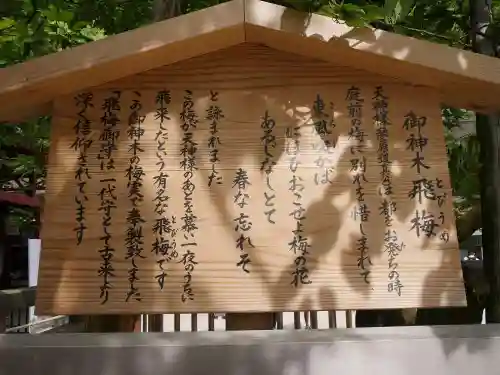 御神木 飛梅
とびうめ
天神様(菅原道真公)は 都を お発ちの時
た
庭前の梅に 別れを 惜しまれて、
東風吹かば
にほひおこせよ 梅の花
あるじなしとて
春な忘れそ
と 詠まれました
この梅が 天神様のあとを慕い 一夜のうちに
飛来したという 有名な 飛梅です
とびうめ
この御神木の 梅実を 奉製致しました
「飛梅御守」は 一代守として 古来より
とびうめ
深く信仰されています